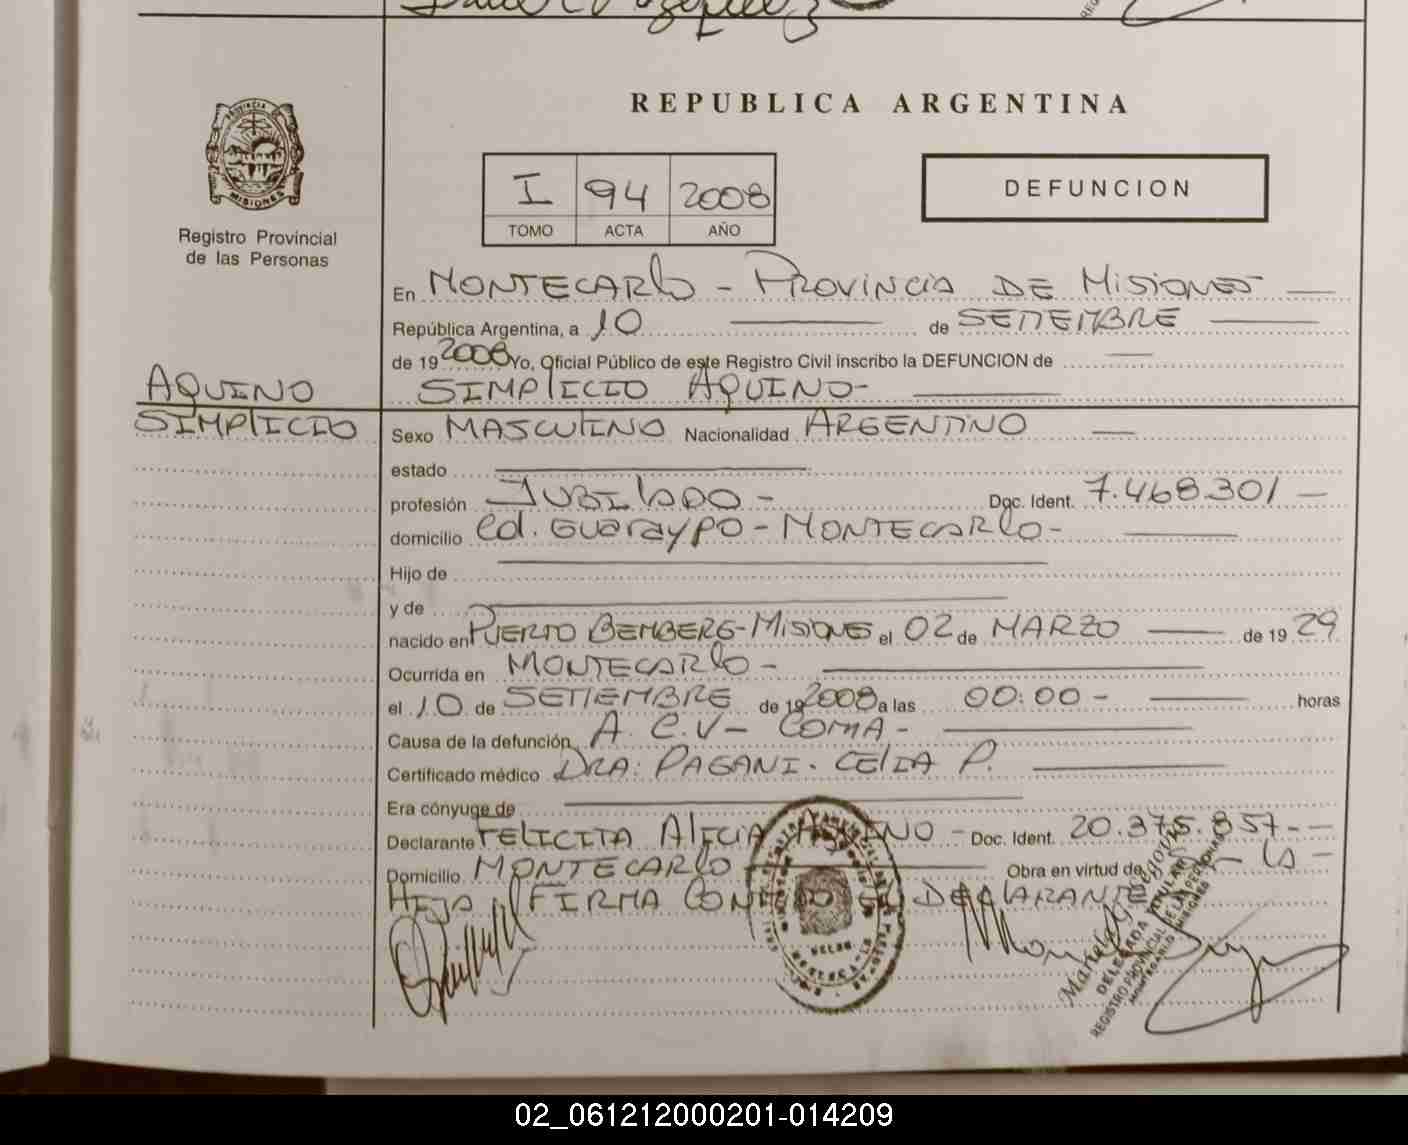 REPUBLICA ARGENTINA
PROVINCIA
MISIONES
Registro Provincial
de las Personas
I 94 2008
TOMO ACTA AÑO
DEFUNCION
En MONTECARLO - PROVINCIA DE MISIONES
República Argentina, a 10 de SETIEMBRE
de 19 2008 Yo, Oficial Público de este Registro Civil inscribo la DEFUNCION de
AQUINO
SIMPLICIO
SIMPLICIO AQUINO-
Sexo MASCULINO Nacionalidad ARGENTINO
estado
profesión JUBILADO - Doc. Ident. 7.468.301 -
domicilio Cd. GUARAYPO - MONTECARLO -
Hijo de
y de
nacido en PUERTO BEMBERG-MISIONES el 02 de MARZO de 19 29
Ocurrida en MONTECARLO -
el 10 de SETIEMBRE de 19 2008 a las 00:00 - horas
Causa de la defunción A. C.V- COMA -
Certificado médico DRA: PAGANI. CELIA P.
Era cónyuge de
Declarante FELICITA ALICIA AQUINO - Doc. Ident. 20.375.857.-
Domicilio MONTECARLO Obra en virtud de - LA -
HIJA FIRMA CON EL DECLARANTE
DELEGADA TITULAR
REGISTRO PROVINCIAL DE LAS PERSONAS
MONTECARLO MISIONES
02_061212000201-014209